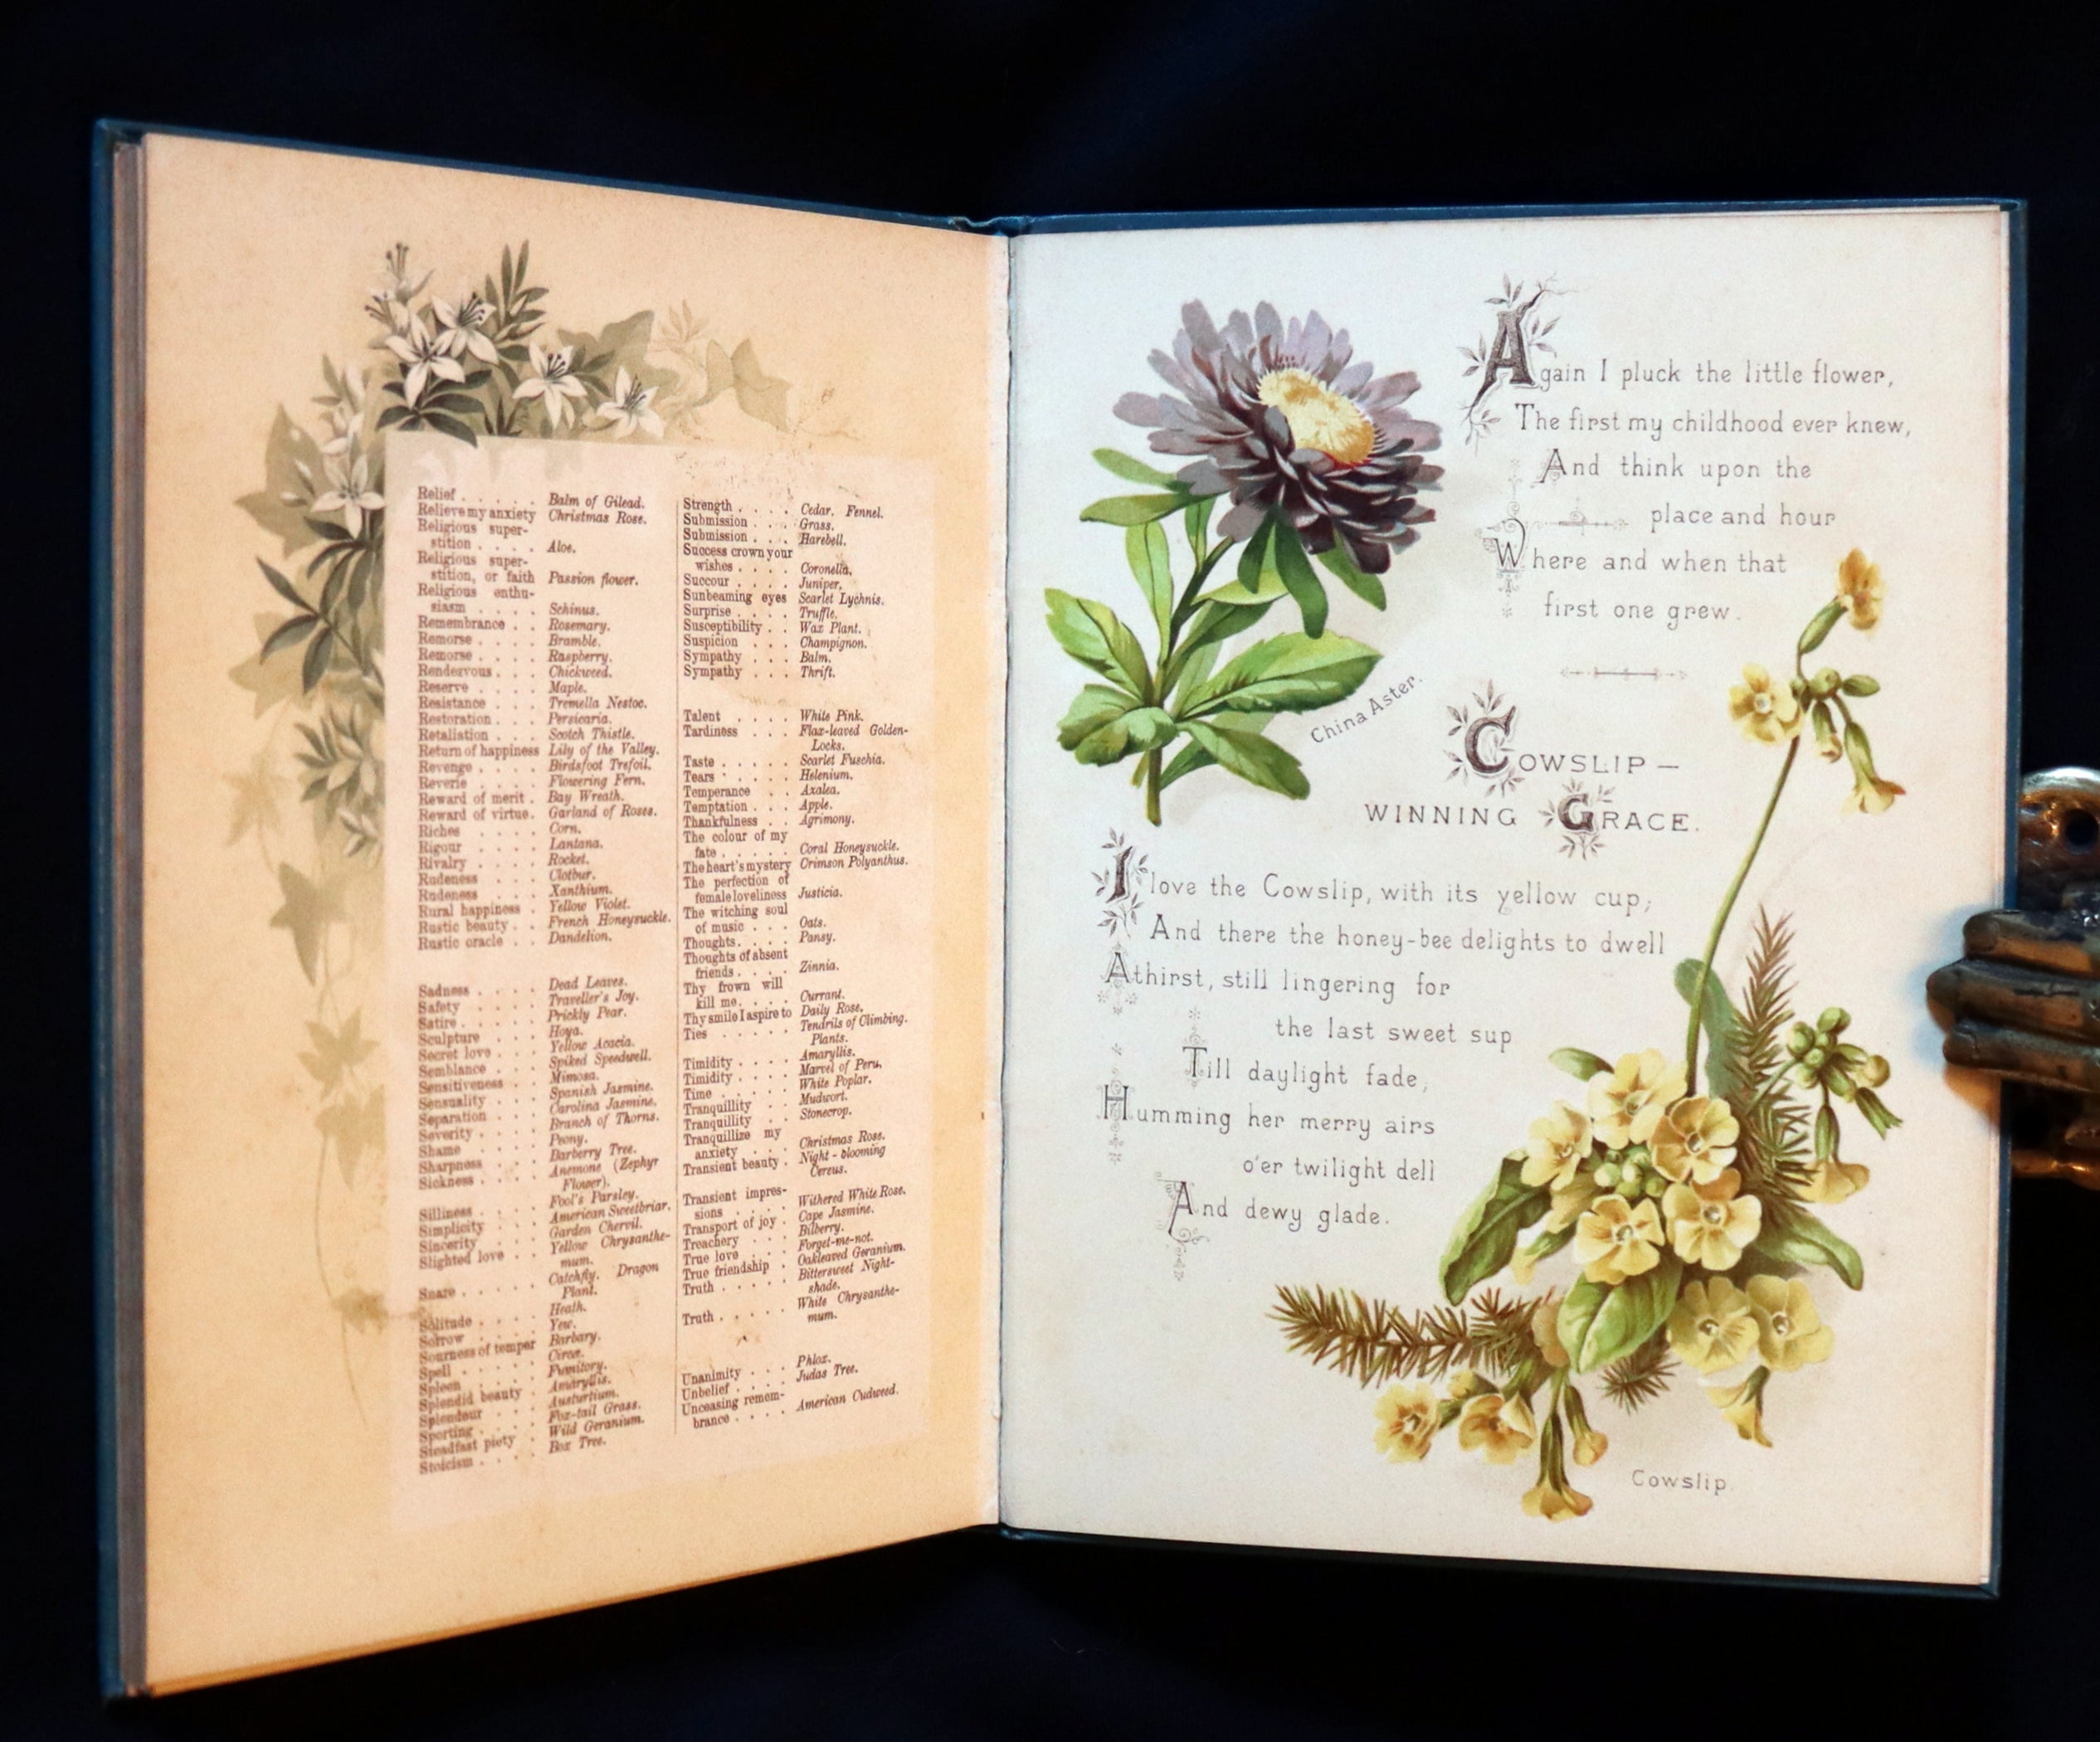 Relief . . . . . Balm of Gilead.
Relieve my anxiety Christmas Rose.
Religious super-
stition . . . . Aloe.
Religious super-
stition, or faith Passion flower.
Religious enthu-
siasm . . . . Schinus.
Remembrance . . Rosemary.
Remorse . . . . Bramble.
Remorse . . . . Raspberry.
Rendezvous . . . Chickweed.
Reserve . . . . Maple.
Resistance . . . Tremella Nestoc.
Restoration . . . Persicaria.
Retaliation . . . Scotch Thistle.
Return of happiness Lily of the Valley.
Revenge . . . . Birdsfoot Trefoil.
Reverie . . . . Flowering Fern.
Reward of merit . Bay Wreath.
Reward of virtue. Garland of Roses.
Riches . . . . Corn.
Rigour . . . . Lantana.
Rivalry . . . . Rocket.
Rudeness . . . Clotbur.
Rudeness . . . Xanthium.
Rural happiness . Yellow Violet.
Rustic beauty . . French Honeysuckle.
Rustic oracle . . Dandelion.
Sadness . . . . Dead Leaves.
Safety . . . . Traveller's Joy.
Satire . . . . . Prickly Pear.
Sculpture . . . Hoya.
Secret love . . . Yellow Acacia.
Semblance . . . Spiked Speedwell.
Sensitiveness . . Mimosa.
Sensuality . . . Spanish Jasmine.
Separation . . . Carolina Jasmine.
Severity . . . . Branch of Thorns.
Shame . . . . Peony.
Sharpness . . . Barberry Tree.
Sickness . . . . Anemone (Zephyr
Flower).
Silliness . . . . Fool's Parsley.
Simplicity . . . American Sweetbriar.
Sincerity . . . Garden Chervil.
Slighted love . . Yellow Chrysanthe-
mum.
Snare . . . . . Catchfly. Dragon
Plant.
Solitude . . . . Heath.
Sorrow . . . . Yew.
Sourness of temper Barbary.
Spell . . . . . Circæ.
Spleen . . . . Fumitory.
Splendid beauty . Amaryllis.
Splendour . . . Austurtium.
Sporting . . . . Fox-tail Grass.
Steadfast piety . Wild Geranium.
Stoicism . . . . Box Tree.
Strength . . . . Cedar. Fennel.
Submission . . . Grass.
Submission . . . Harebell.
Success crown your
wishes . . . . Coronella.
Succour . . . . Juniper.
Sunbeaming eyes Scarlet Lychnis.
Surprise . . . . Truffle.
Susceptibility . . Wax Plant.
Suspicion . . . Champignon.
Sympathy . . . Balm.
Sympathy . . . Thrift.
Talent . . . . White Pink.
Tardiness . . . Flax-leaved Golden-
Locks.
Taste . . . . . Scarlet Fuschia.
Tears . . . . . Helenium.
Temperance . . Azalea.
Temptation . . . Apple.
Thankfulness . . Agrimony.
The colour of my
fate . . . . . Coral Honeysuckle.
The heart's mystery Crimson Polyanthus.
The perfection of
female loveliness Justicia.
The witching soul
of music . . . Oats.
Thoughts. . . . Pansy.
Thoughts of absent
friends. . . . Zinnia.
Thy frown will
kill me. . . . Currant.
Thy smile I aspire to Daily Rose.
Ties . . . . . Tendrils of Climbing.
Plants.
Timidity . . . . Amaryllis.
Timidity . . . . Marvel of Peru.
Time . . . . . White Poplar.
Tranquillity . . Mudwort.
Tranquillity . . Stonecrop.
Tranquillize my
anxiety . . . Christmas Rose.
Transient beauty . Night-blooming
Cereus.
Transient impres-
sions . . . . Withered White Rose.
Transport of joy . Cape Jasmine.
Treachery . . . Bilberry.
True love . . . Forget-me-not.
True friendship . Oakleaved Geranium.
Truth . . . . . Bittersweet Night-
shade.
Truth . . . . . White Chrysanthe-
mum.
Unanimity . . . Phlox.
Unbelief . . . . Judas Tree.
Unceasing remem-
brance . . . . American Cudweed.
Again I pluck the little flower,
The first my childhood ever knew,
And think upon the
place and hour
Where and when that
first one grew.
China Aster.
COWSLIP —
WINNING GRACE.
I love the Cowslip, with its yellow cup;
And there the honey-bee delights to dwell
Athirst, still lingering for
the last sweet sup
Till daylight fade,
Humming her merry airs
o'er twilight dell
And dewy glade.
Cowslip.